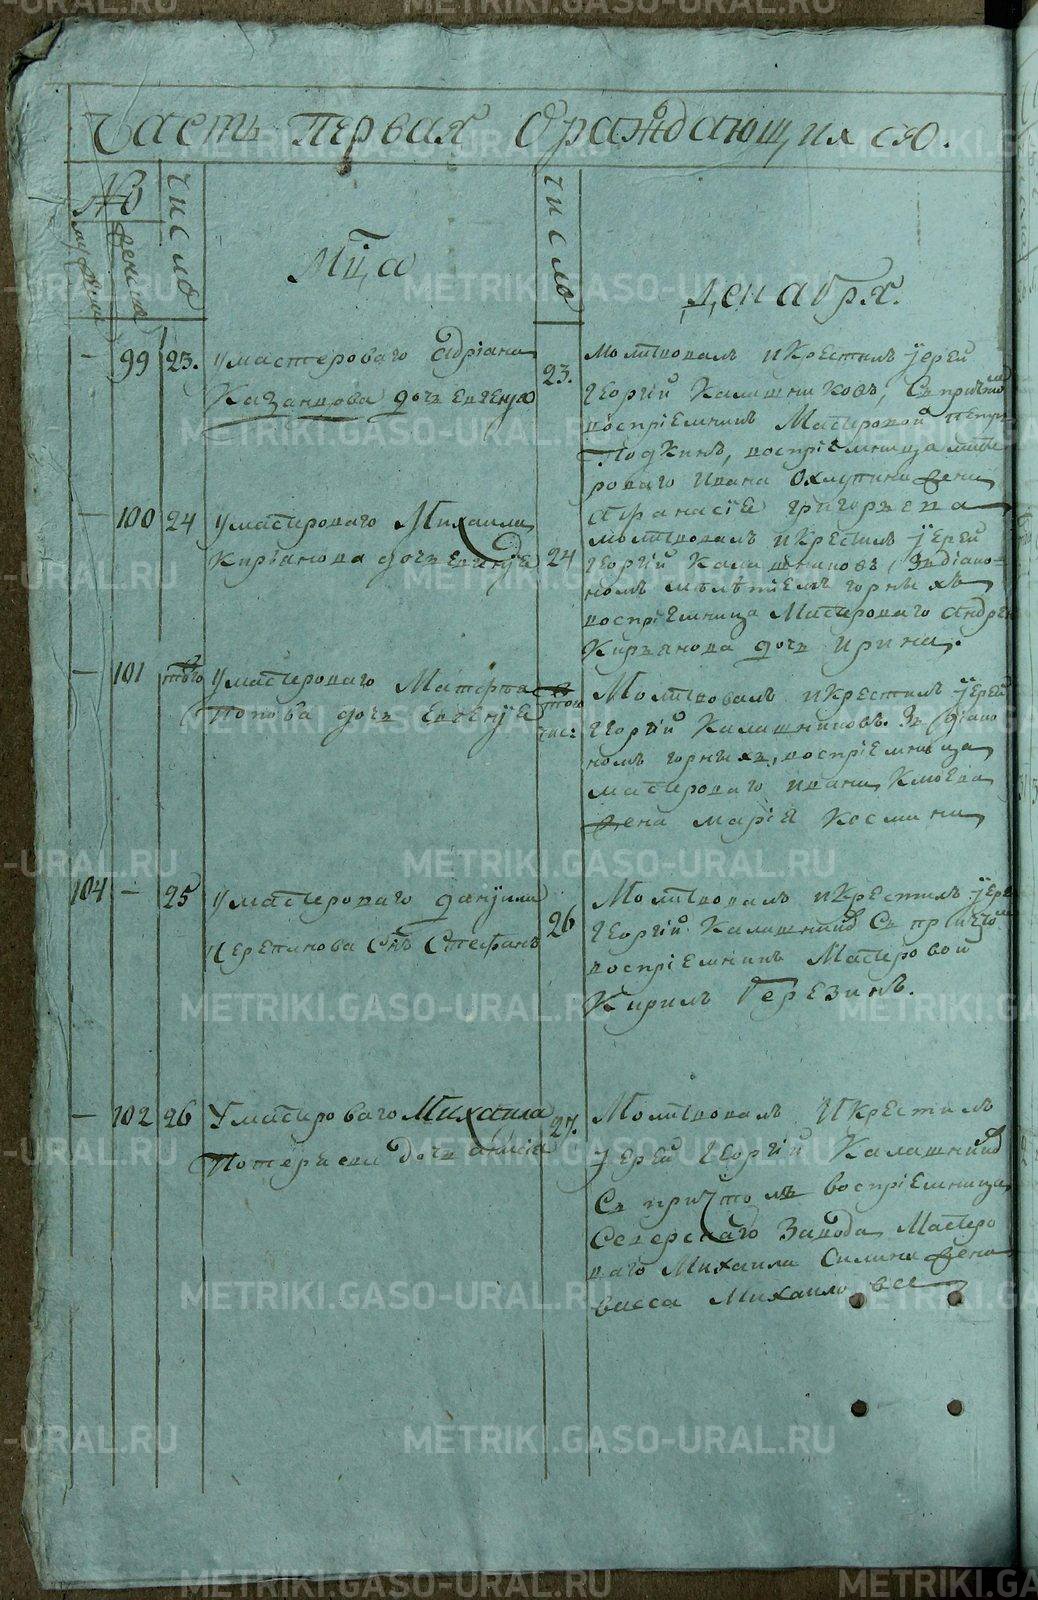 Часть первая ораждающихся.
№
мужеска
женска
число
Мца
число
декабря.
- 99 23. Умастероваго Адріана
Казанцова дочь Евгенія
23. Молитвовалъ икрестилъ іерей
Георгій Калашниковъ, Спричтомъ
воспріемникъ Мастеровой Петръ
воспріемница масте
роваго Ивана Охлупина жена
Афанасія Григорьева
- 100 24 Умастероваго Михаила
Кирьянова дочь Евгенія
24 молитвовалъ икрестилъ іерей
Георгій Калашниковъ, Здіако
номъ горныхъ
воспріемница Мастероваго Андрея
Кирьянова дочь Ирина.
- 101 того Умастероваго Матфея
Попова дочь Евгенія
того чис: Молитвовалъ икрестилъ іерей
Георгій Калашниковъ. Здіако
номъ горныхъ, воспріемница
мастероваго Ивана
жена Марія Космина
104 - 25 Умастероваго Даніила
Черепанова Снъ Стефанъ
26 Молитвовалъ икрестилъ іерей
Георгій Калашниковъ Спричтомъ
воспріемникъ Мастеровой
Кирилъ Березинъ.
- 102 26 Умастероваго Михаила
Потеряева дочь Анисія
27. Молитвовалъ Икрестилъ
іерей Георгій Калашниковъ
Съ причтомъ воспріемница
Северскаго Завода Мастеро
ваго Михаила Силина жена
Васса Михайлова
METRIKI.GASO-URAL.RU